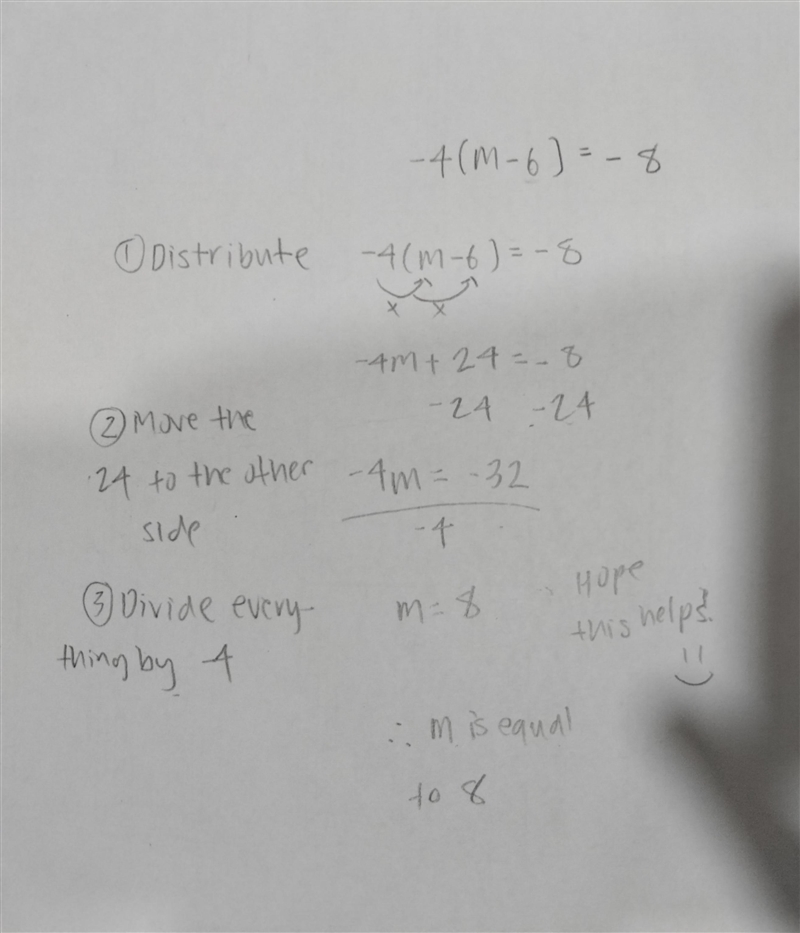 -4(m-6)=-8
① Distribute -4(m-6)=-8
x x
-4m+24=-8
-24 -24
② Move the
24 to the other
side
-4m=-32
-4
③ Divide every-
thing by -4
m=8
Hope
this helps!
∴ m is equal
to 8